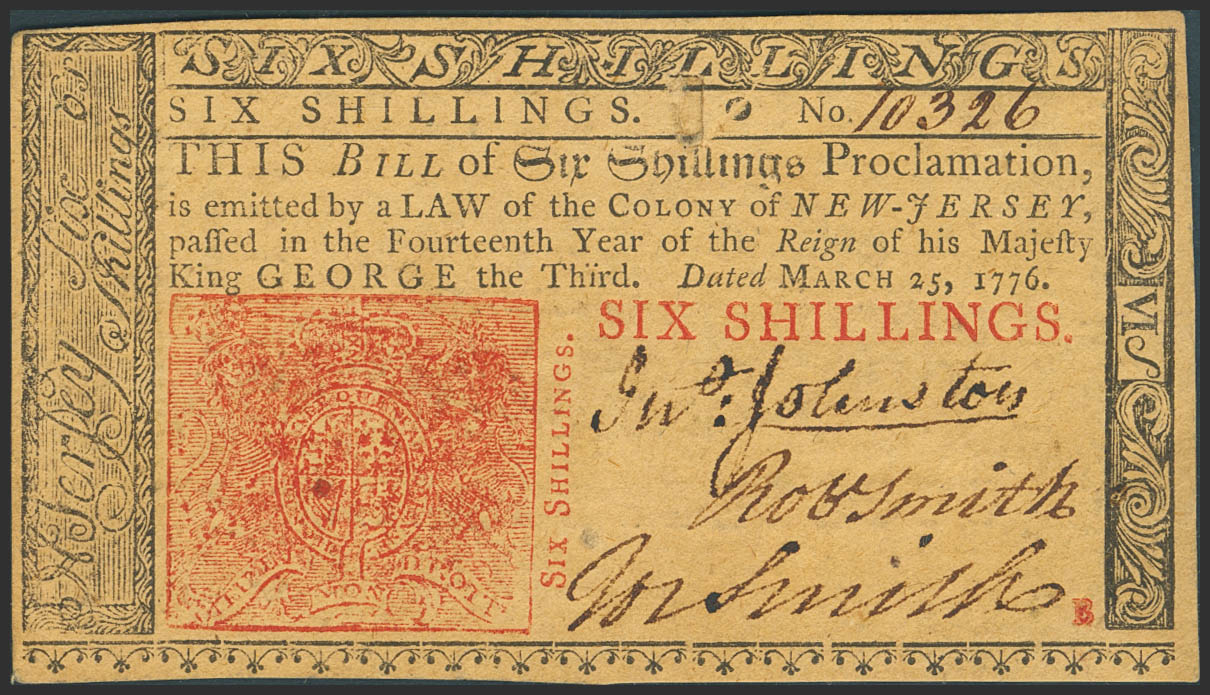 SIX SHILLINGS
SIX SHILLINGS. No. 10326
THIS BILL of Six Shillings Proclamation,
is emitted by a LAW of the COLONY of NEW-JERSEY,
paſſed in the Fourteenth Year of the Reign of his Majeſty
King GEORGE the Third. Dated MARCH 25, 1776.
SIX SHILLINGS.
SIX SHILLINGS.
Jno. Johnston
Rob Smith
Jon Smith
B
DIEU ET MON DROIT
Six
Shillings
N Jerſey
VIS